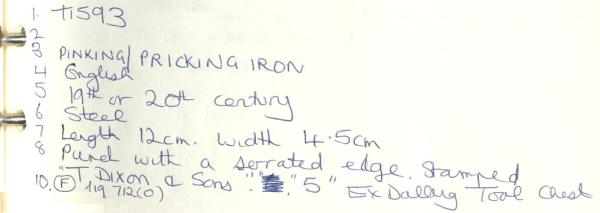 1. TI593
2
3 PINKING/PRICKING IRON
4 English
5 19th or 20th century
6 Steel
7 Length 12cm. width 4.5cm
8 Punch with a serrated edge. Stamped
"T. Dixon & Sons". "5" Ex Tool Chest
10. (F) 119 712(0)